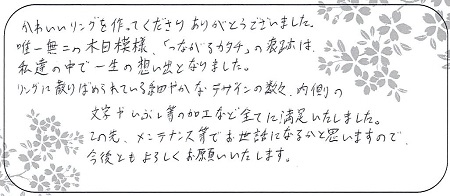 かわいいリングを作ってくださりありがとうございました。
唯一無二の木目模様、「つながるカタチ」の表跡は、
私達の中で一生の想い出となりました。
リングに散りばめられている細やかなデザインの数々、内側の
文字やいぶし等の加工など全てに満足いたしました。
この先、メンテナンス等でお世話になるかと思いますので、
今後ともよろしくお願いいたします。